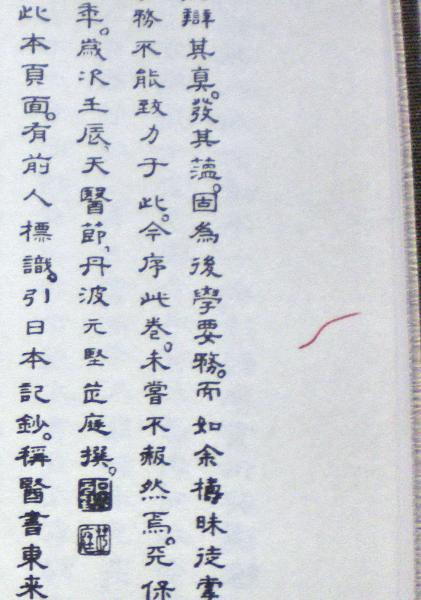 辯其真。發其蘊。固為後學要務。而如余檮昧徒掌
務不能致力于此。今序此卷。未嘗不赧然焉。天保
年。歲次壬辰、天醫節、丹波元堅茝庭撰。
茝庭
此本頁面。有前人標識。引日本記鈔。稱醫書東来